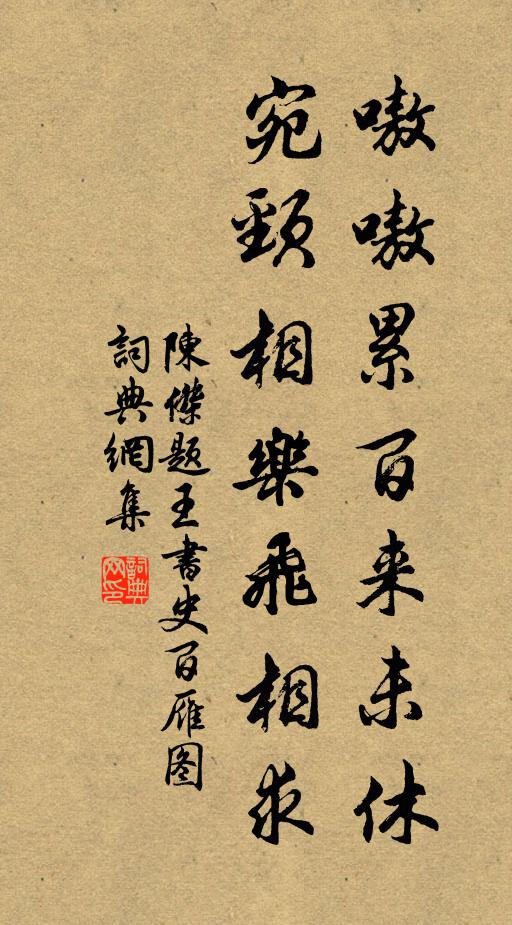 嗷嗷累百来未休
宛頸相樂飛相求
陳傑题王書史百雁图
詞典網集
詞典網印